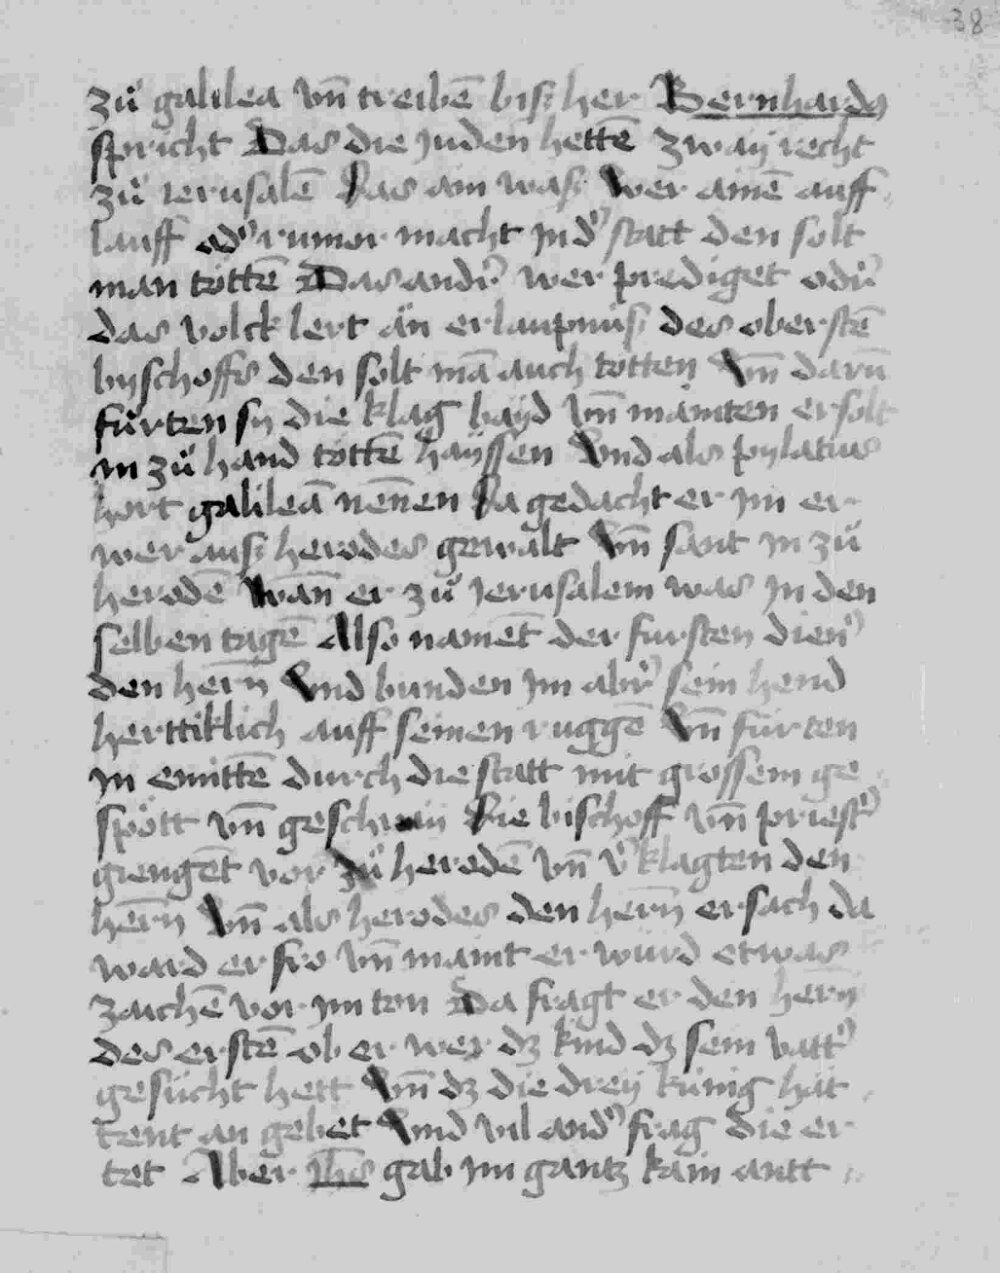 38
zů galilea vn̄ treibē bisz her Bernhardꝰ
spricht Das die juden hettē zwaÿ recht
zů ierusalē Das ain wasz wer ainē auff
lauff odʼ rumor macht jn dʼ statt den solt
man töttē Das andrʼ wer prediget odrʼ
das volck lert än erlaupnüsz des oberstē
byschoffs den solt mā auch totten Vn̄ darū
fürten sy die klag baÿd vn̄ mainten er solt
jn zů hand töttē haÿssen Vnd als pylatus
hort galileā nen̄en Da gedacht er jm er
wer ausz herodes gewalt Vn̄ sant jn zů
herodē Wan̄ er zů jerusalem was jn den
selben tagē Also namēt der fursten dienʼ
den hern̄ Vnd bunden jm abrʼ sein hend
herttiklich auff seinen ruggē Vn̄ fürten
jn emittē durch die statt mit grossem ge
spött vn̄ geschraÿ Die bischoff vn̄ priestʼ
giengēt vor zů herodē vn̄ vʼklagten den
hern̄ Vn̄ als herodes den hern̄ ersach da
ward er fro vn̄ maint er wurd etwas
zaichē vor jm ten Da fragt er den hern̄
des erstē ob er wer dz kind dz sein vattʼ
gesücht hett Vn̄ dz die dreÿ künig hät
tent an gebet Vnd vil andʼ frag die er
tet Aber jhs̄ gab jm gantz kain antt